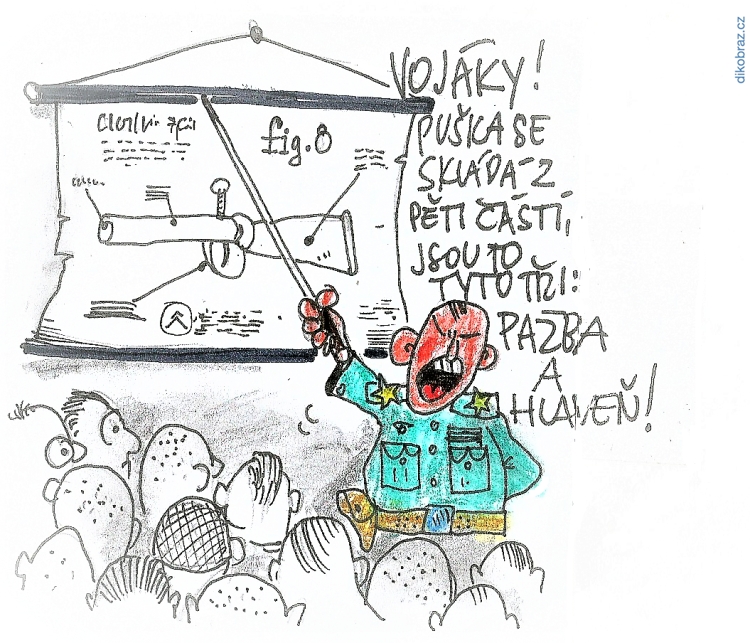 dikobraz.cz
VOJÁKY!
PUŠKA SE
SKLÁDÁ Z
PĚTI ČÁSTÍ,
JSOU TO
TYTO TŘI:
PAZBA
A
HLAVEŇ!
fig. 8